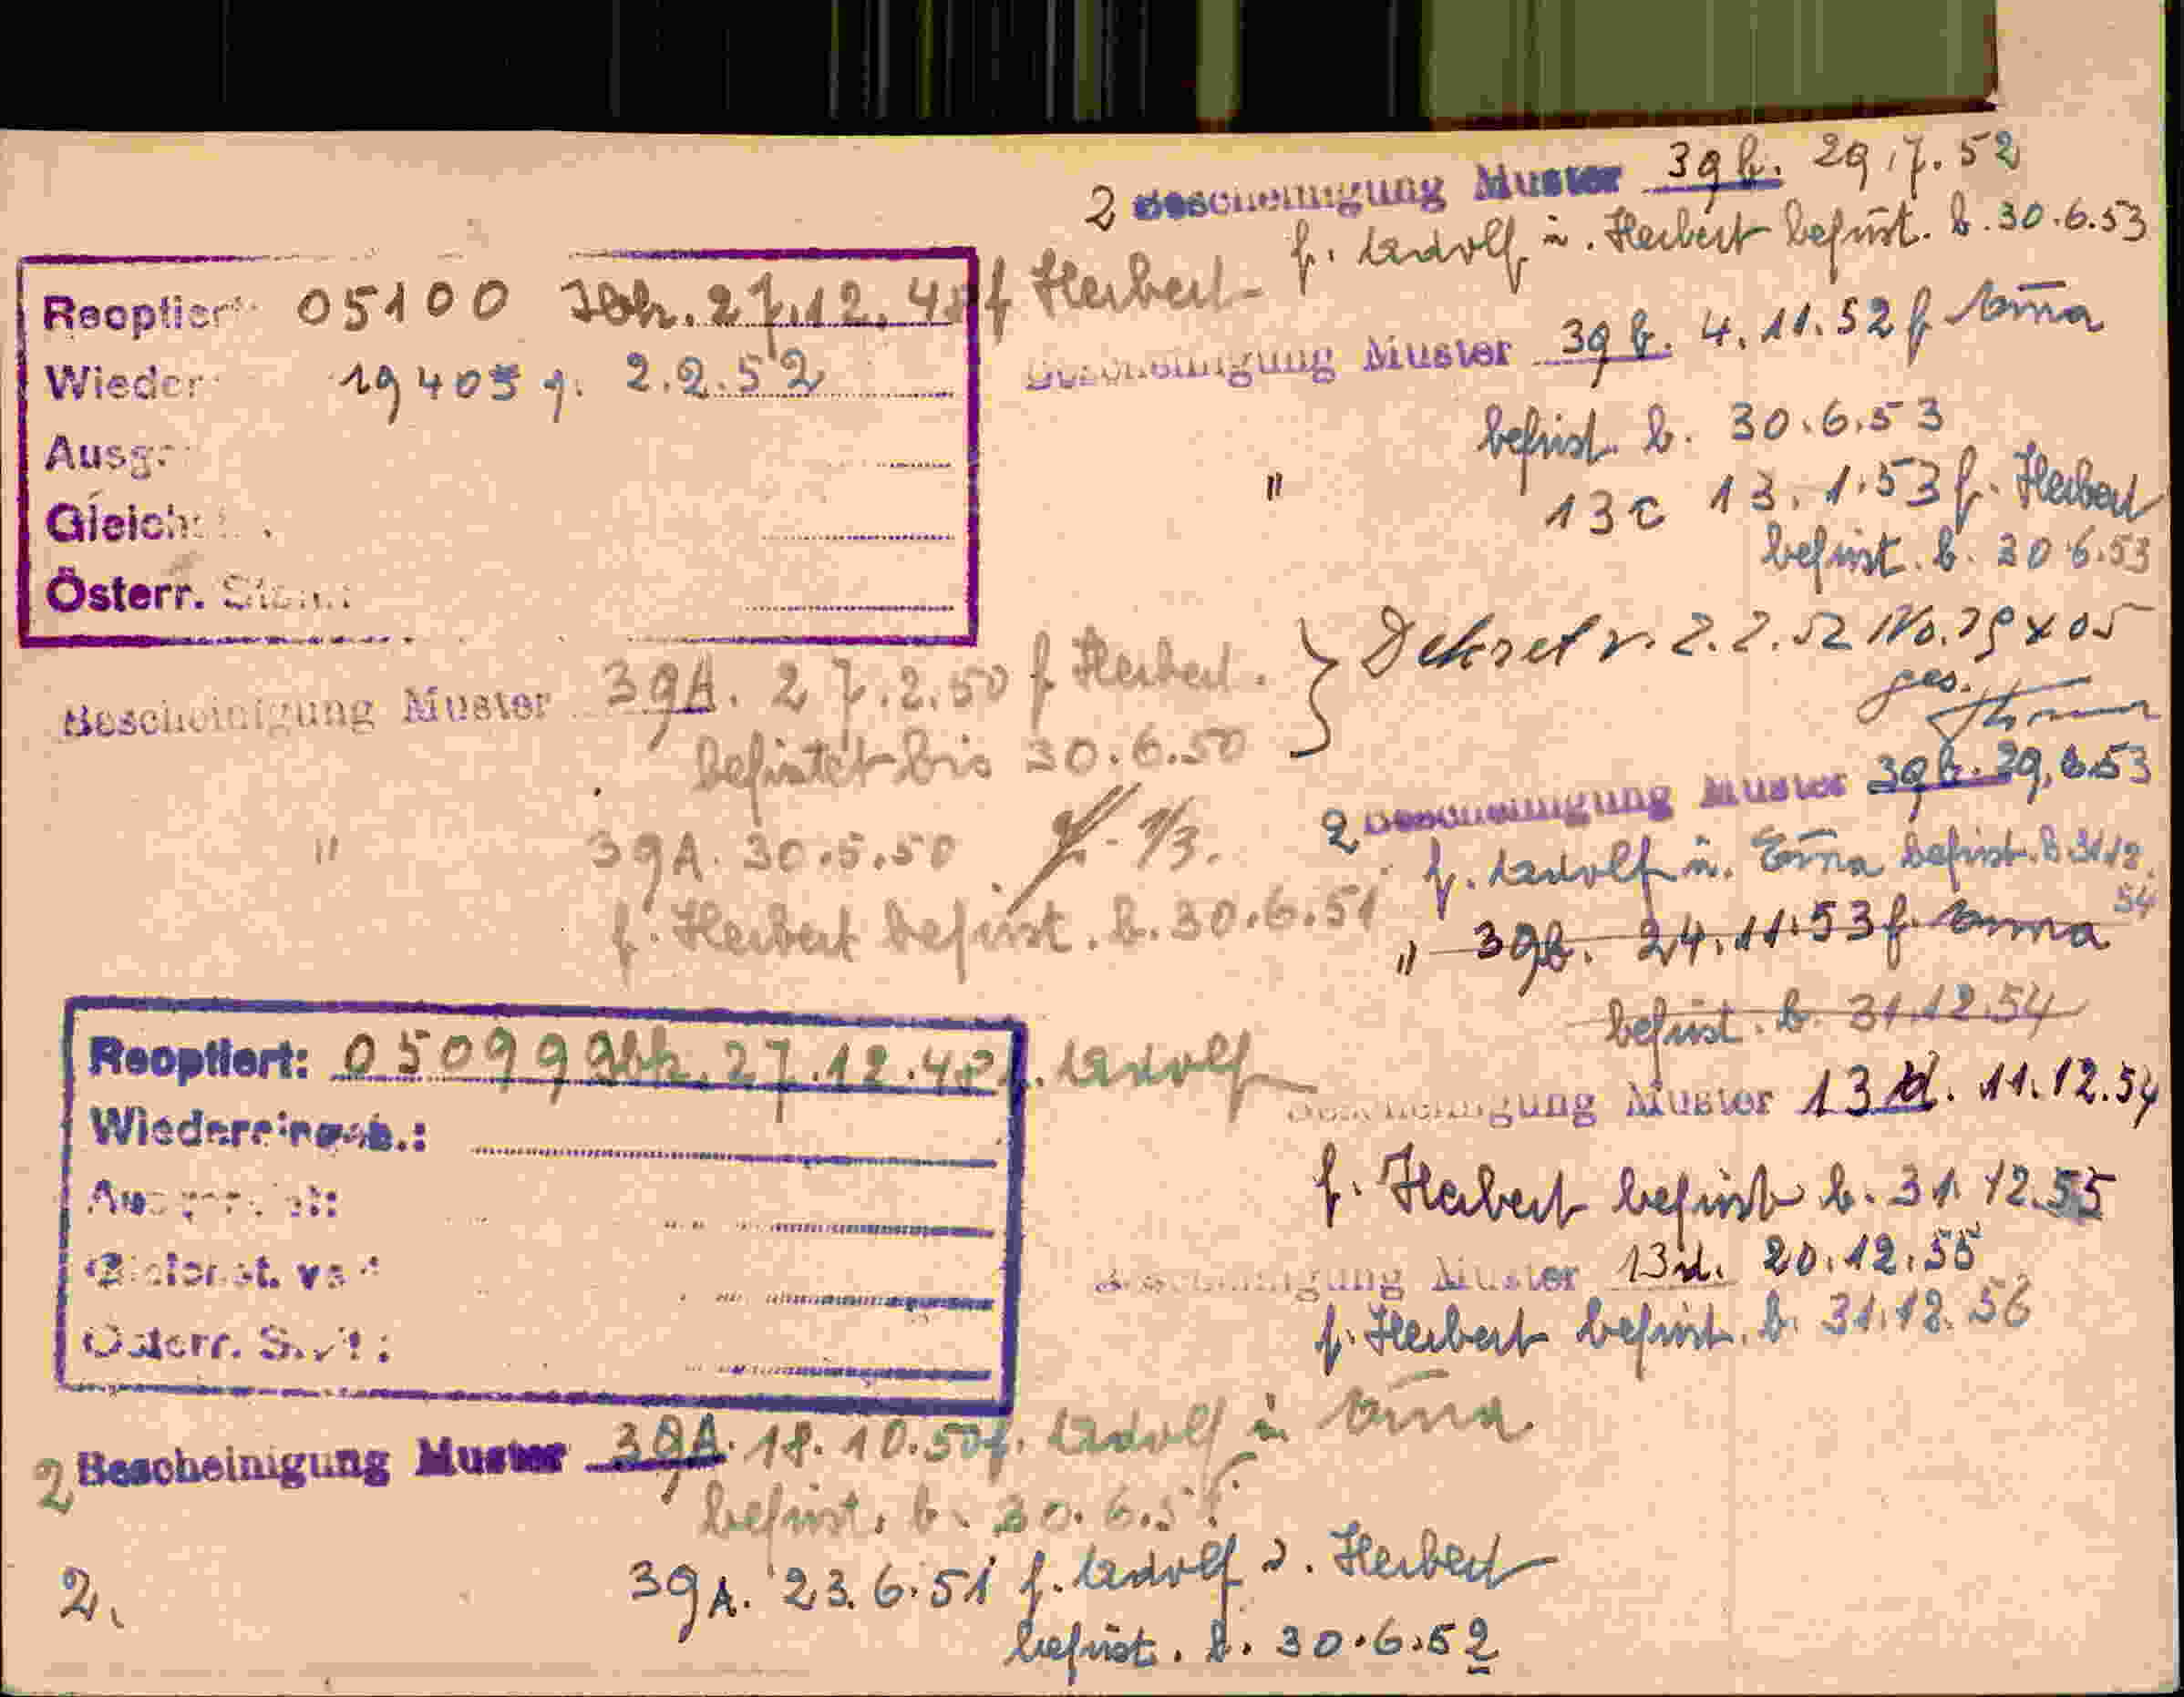 Reoptiert: 05100 27.12.48 f Herbert
Wieder 19405 v. 2.2.52
Ausg.
Gleich
Österr.
Bescheinigung Muster 39A. 27.2.50 f Herbert.
befristet bis 30.6.50
" 39A. 30.5.50
f. Herbert befrist. b. 30.6.51
Reoptiert: 05099 27.12.48 f. Adolf
Wiedereingeb.:
Österr.
2 Bescheinigung Muster 39A. 18.10.50 f. Adolf u Erna
befrist. b. 30.6.51
2. 39A. 23.6.51 f. Adolf u. Herbert
befrist. b. 30.6.52
2 Bescheinigung Muster 39b. 29.7.52
f. Adolf u. Herbert befrist. b. 30.6.53
Bescheinigung Muster 39b. 4.11.52 f Erna
befrist. b. 30.6.53
" 13c 13.1.53 f. Herbert
befrist. b. 30.6.53
} Dekret v. 2.2.52 No. 19405
ges.
2 Bescheinigung Muster 39b. 29.6.53
f. Adolf u. Erna befrist. b. 31.12.
54
" 39b. 24.11.53 f. Erna
befrist. b. 31.12.54
Bescheinigung Muster 13d. 11.12.54
f. Herbert befrist b. 31.12.55
Bescheinigung Muster 13d. 20.12.55
f. Herbert befrist. b. 31.12.56